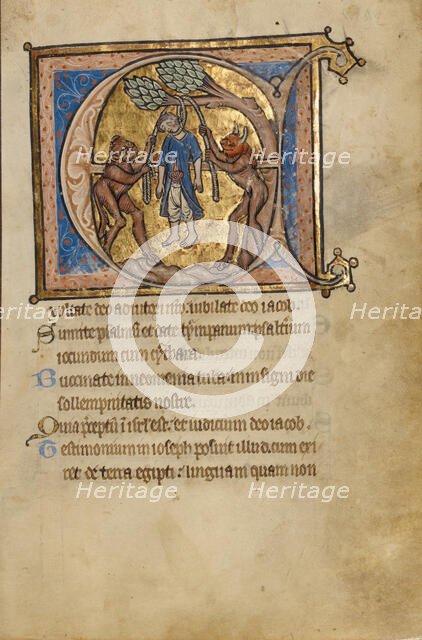 E
xultate deo adiutori nr̄o iubilate deo iacob.
Sumite psalmū et date tȳmpanum psaltium
iocundum cum cythara.
Buccinate in neomenia tuba in insigni die
sollempnitatis nostre.
Quia p̄ceptū ī isrl̄ est. et iudicium deo iacob.
Testimonium in ioseph posuit illud. cum exi
ret de terra egipti : linguam quam non
Heritage
Heritage
Heritage
Heritage
Heritage
Heritage